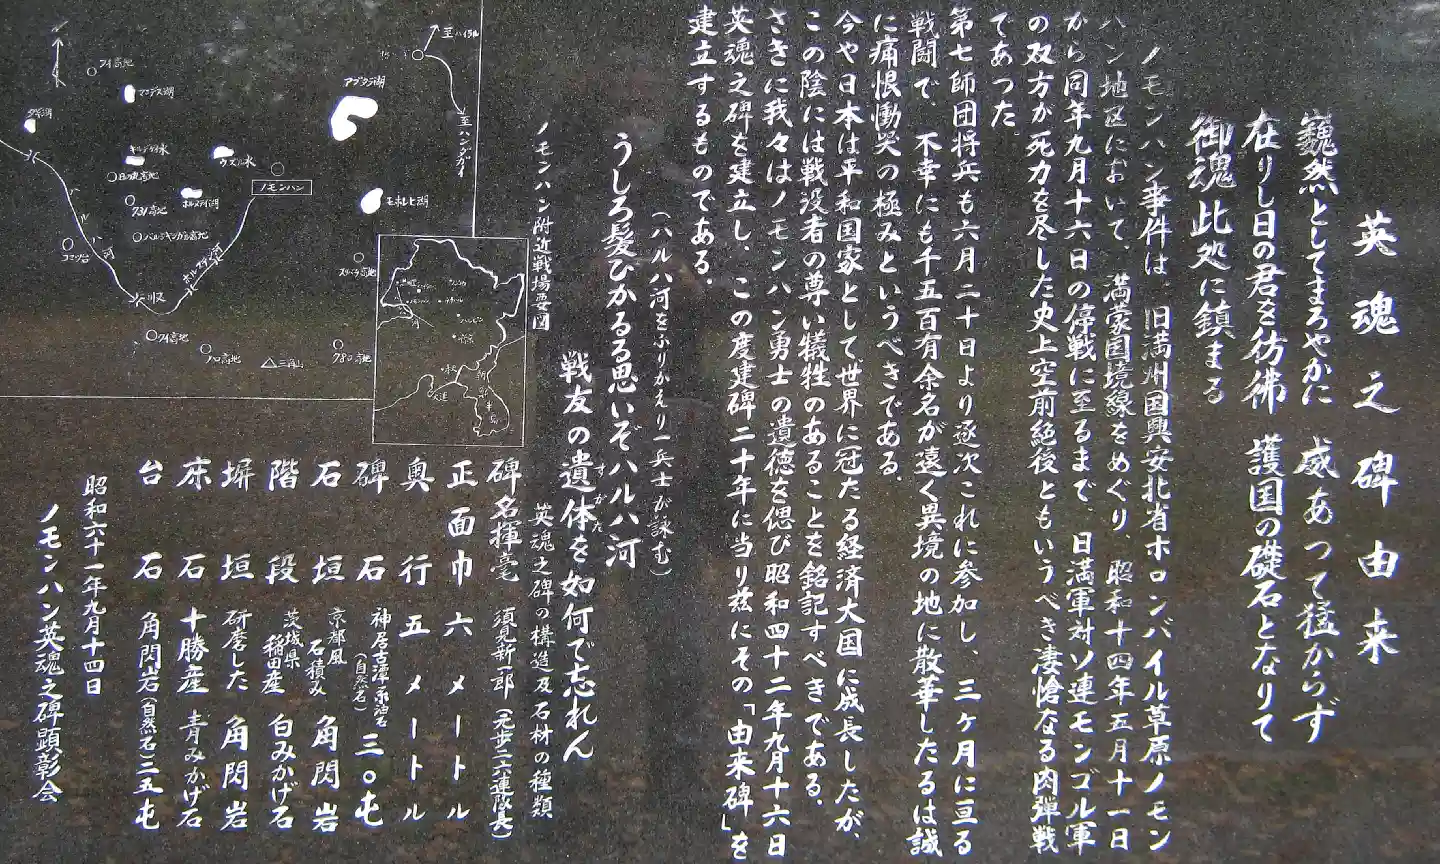 英魂之碑由来
巍然としてまろやかに 威あつて猛からず
在りし日の君を彷彿 護国の礎石となりて
御魂此処に鎮まる
ノモンハン事件は、旧満州国興安北省ホロンバイル草原ノモン
ハン地区において、満蒙国境線をめぐり、昭和十四年五月十一日
から同年九月十六日の停戦に至るまで、日満軍対ソ連モンゴル軍
の双方が死力を尽した史上空前絶後ともいうべき凄愴なる肉弾戦
であつた。
第七師団将兵も六月二十日より逐次これに参加し、三ヶ月に亘る
戦闘で、不幸にも千五百有余名が遠く異境の地に散華したるは誠
に痛恨慟哭の極みというべきである。
今や日本は平和国家として世界に冠たる経済大国に成長したが、
この陰には戦没者の尊い犠牲のあることを銘記すべきである。
さきに我々はノモンハン勇士の遺徳を偲び昭和四十二年九月十六日
英魂之碑を建立し、この度建碑二十年に当り茲にその「由来碑」を
建立するものである。
(ハルハ河をふりかえり一兵士が詠む)
うしろ髪ひかるる思いぞハルハ河
戦友の遺体を如何で忘れん
すがた
ノモンハン附近戦場要図
至ハイラル
至ハンダガイ
アブタラ湖
マンデス湖
ウズル水
日の丸高地
ノモンハン
731高地
モホレヒ湖
バルシャガル高地
コマツ台
ハルハ河
ホルステン河
川又
ノロ高地
三角山
780高地
英魂之碑の構造及石材の種類
碑名揮毫 須見新一郎(元歩二六連隊長)
正面巾 六メートル
奥行 五メートル
碑石 神居古潭・油石(自然石) 三〇屯
石垣 京都風石積み 角閃岩
階段 茨城県稲田産 白みかげ石
塀垣 研磨した 角閃岩
床石 十勝産 青みかげ石
台石 角閃岩(自然石)三五屯
昭和六十一年九月十四日
ノモンハン英魂之碑顕彰会